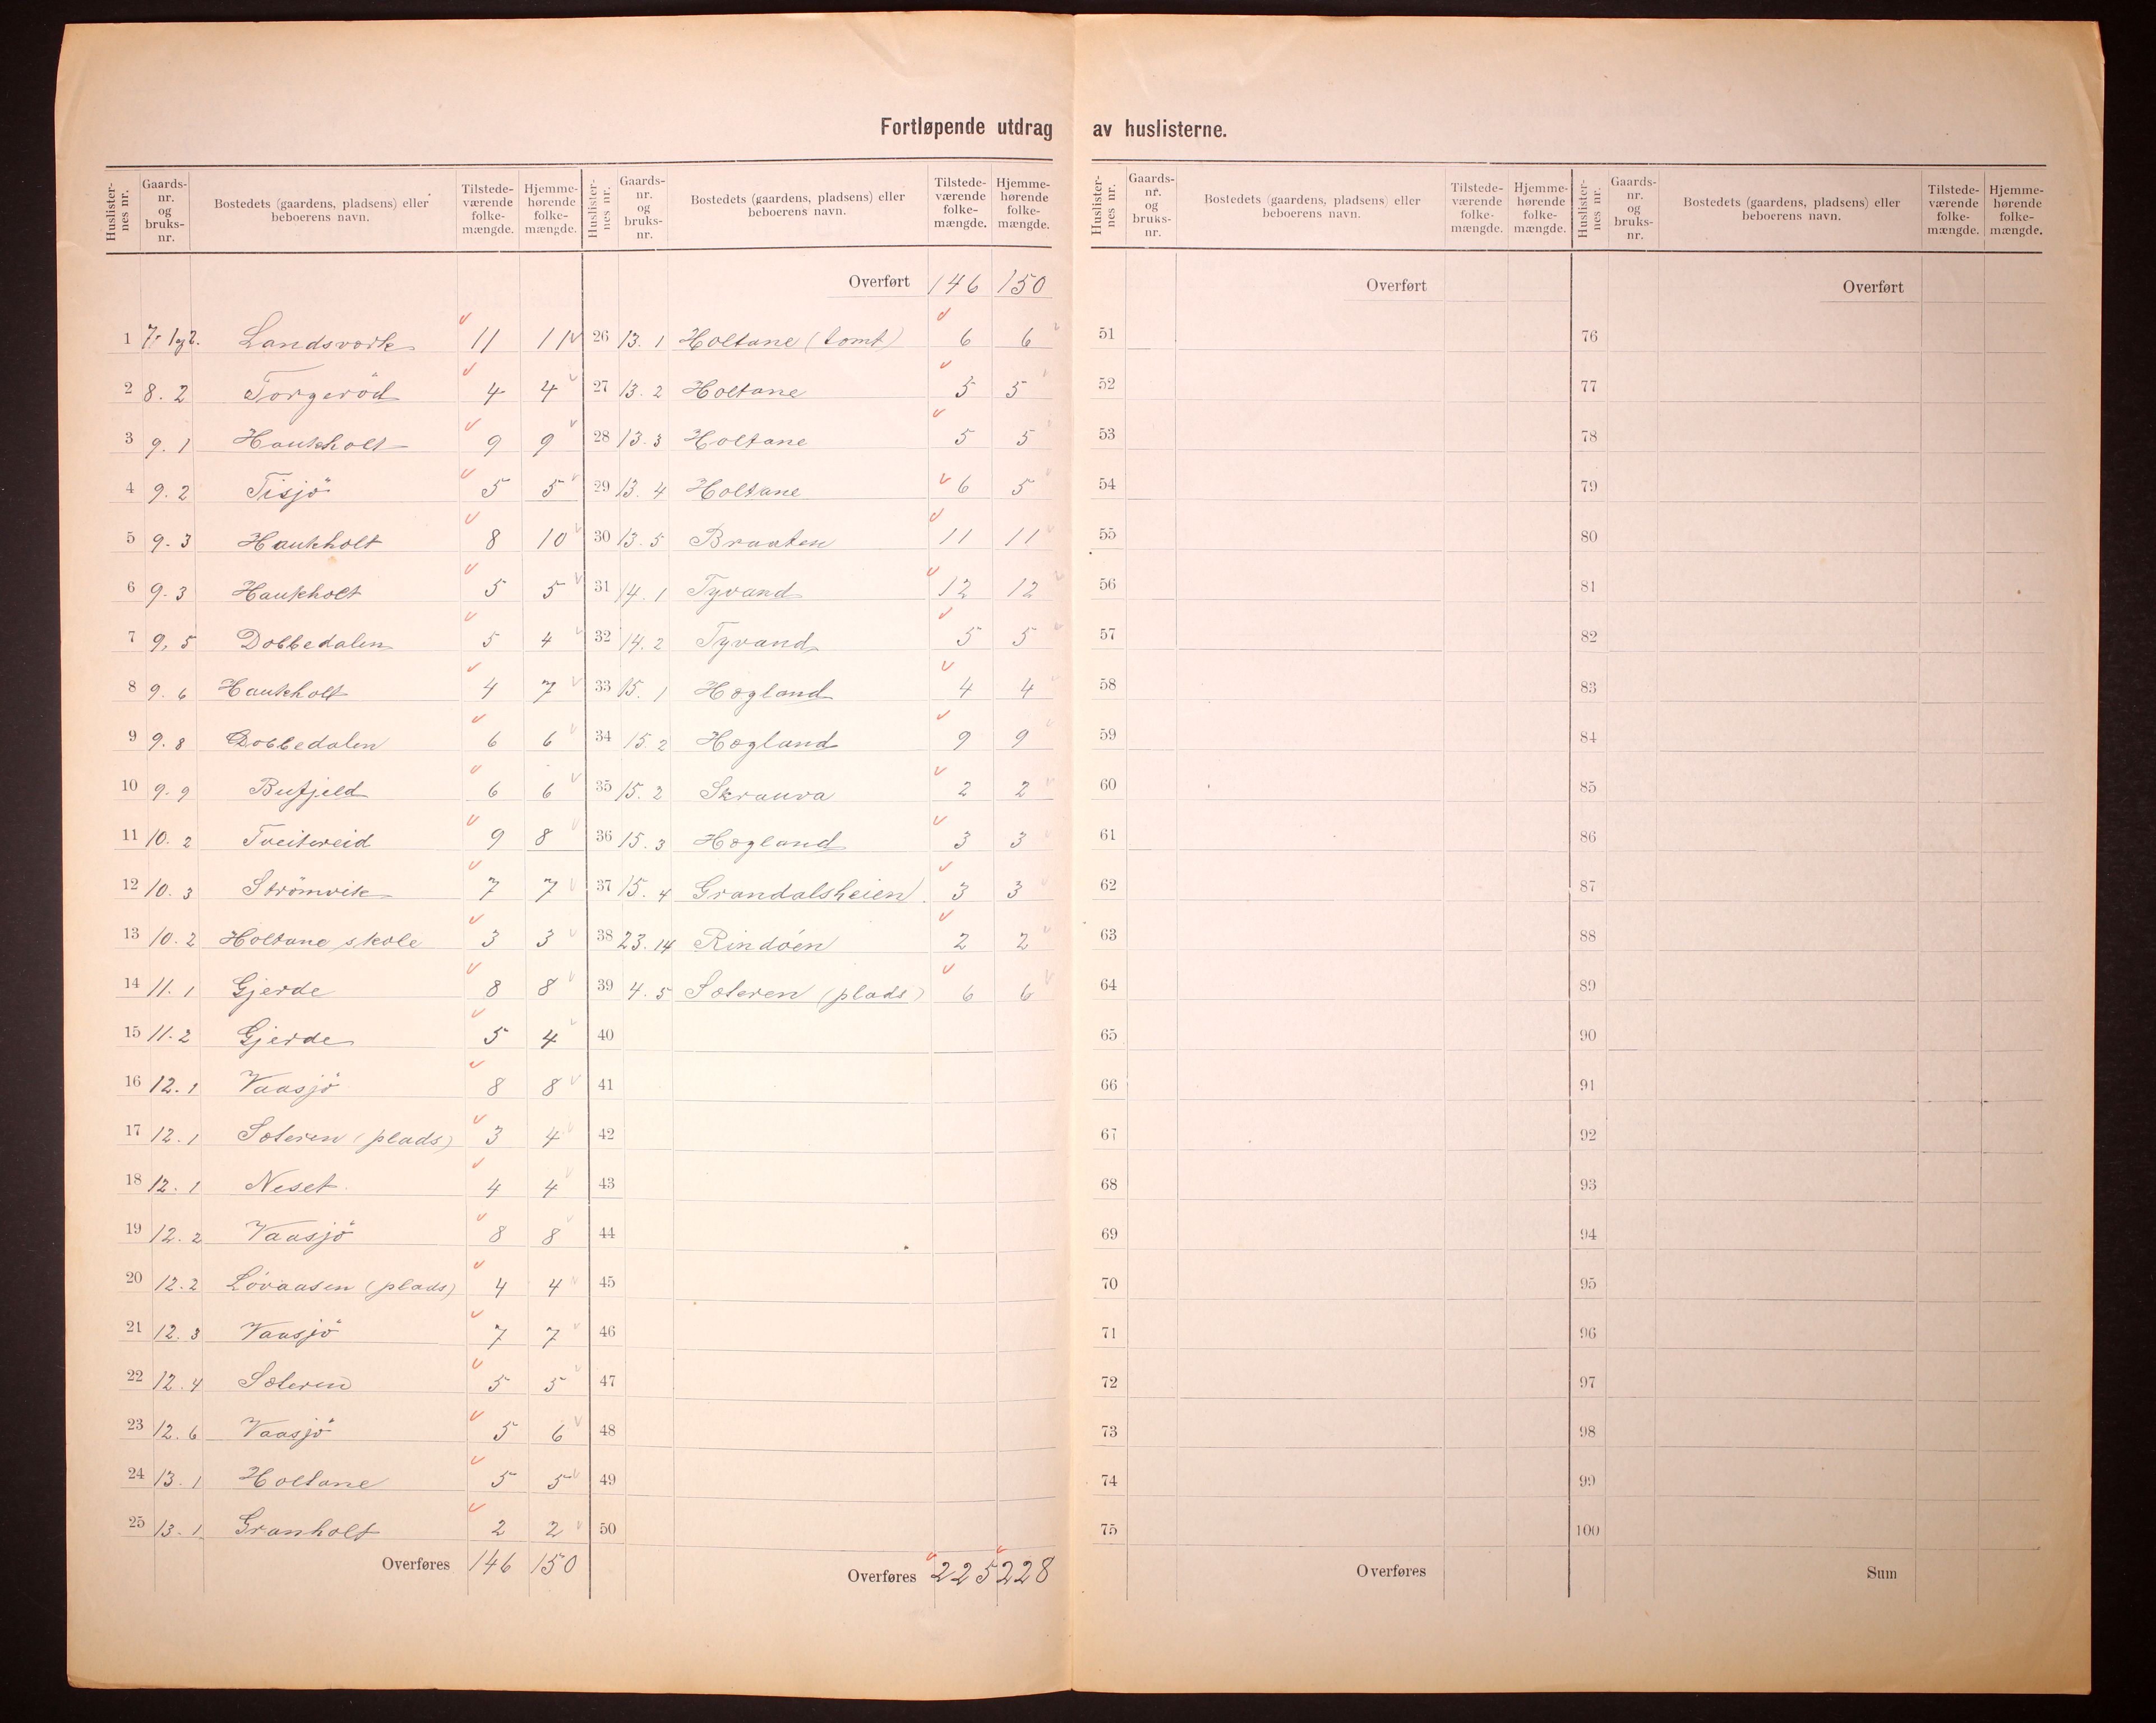 Fortløpende utdrag av huslisterne.
Huslister-nes nr. Gaards-nr. og bruks-nr. Bostedets (gaardens, pladsens) eller beboerens navn. Tilstede-værende folke-mængde. Hjemme-hørende folke-mængde.
1 7. 1 og 2. Landsverk 11 11
2 8. 2 Torgeröd 4 4
3 9. 1 Haukholt 9 9
4 9. 2 Tisjö 5 5
5 9. 3 Haukholt 8 10
6 9. 3 Haukholt 5 5
7 9. 5 Dobbedalen 5 4
8 9. 6 Haukholt 4 7
9 9. 8 Dobbedalen 6 6
10 9. 9 Bufjeld 6 6
11 10. 2 Tveitereid 9 8
12 10. 3 Strömvik 7 7
13 10. 2 Holtane skole 3 3
14 11. 1 Gjerde 8 8
15 11. 2 Gjerde 5 4
16 12. 1 Vaasjö 8 8
17 12. 1 Sæteren (plads) 3 4
18 12. 1 Neset 4 4
19 12. 2 Vaasjö 8 8
20 12. 2 Lövaasen (plads) 4 4
21 12. 3 Vaasjö 7 7
22 12. 4 Sæteren 5 5
23 12. 6 Vaasjö 5 6
24 13. 1 Holtane 5 5
25 13. 1 Granholt 2 2
Overføres 146 150
Huslister-nes nr. Gaards-nr. og bruks-nr. Bostedets (gaardens, pladsens) eller beboerens navn. Tilstede-værende folke-mængde. Hjemme-hørende folke-mængde.
Overført 146 150
26 13. 1 Holtane (tomt) 6 6
27 13. 2 Holtane 5 5
28 13. 3 Holtane 5 5
29 13. 4 Holtane 6 5
30 13. 5 Braaten 11 11
31 14. 1 Tyvand 12 12
32 14. 2 Tyvand 5 5
33 15. 1 Hægland 4 4
34 15. 2 Hægland 9 9
35 15. 2 Skrauva 2 2
36 15. 3 Hægland 3 3
37 15. 4 Grandalsheien 3 3
38 23. 14 Rindöen 2 2
39 4. 5 Sæteren (plads) 6 6
40
41
42
43
44
45
46
47
48
49
50
Overføres 225 228
Huslister-nes nr. Gaards-nr. og bruks-nr. Bostedets (gaardens, pladsens) eller beboerens navn. Tilstede-værende folke-mængde. Hjemme-hørende folke-mængde.
Overført
51
52
53
54
55
56
57
58
59
60
61
62
63
64
65
66
67
68
69
70
71
72
73
74
75
Overføres
Huslister-nes nr. Gaards-nr. og bruks-nr. Bostedets (gaardens, pladsens) eller beboerens navn. Tilstede-værende folke-mængde. Hjemme-hørende folke-mængde.
Overført
76
77
78
79
80
81
82
83
84
85
86
87
88
89
90
91
92
93
94
95
96
97
98
99
100
Sum